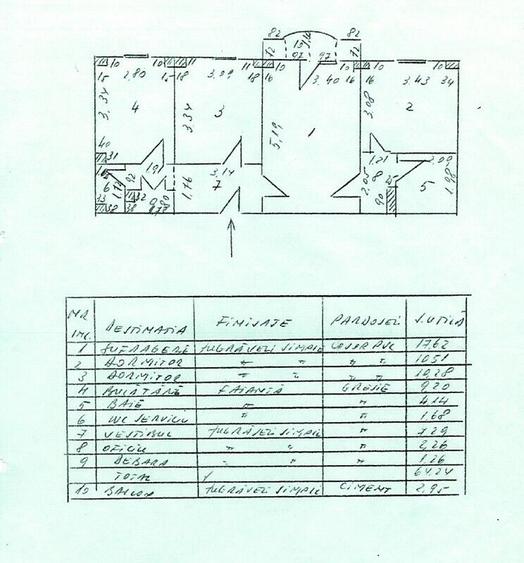 82 82
72 13 72
10 10 11 11 10 92 97 10 10
15 2,80 15 18 3,09 18 16 3,40 16 16 3,43 34
3,34 4 3,34 3 5,19 1 3,08 2
40
31 1,91 3,14 1,21 2,09
6 1,76 7 2,05 8 5 1,98
92 32 90
NR. INC. DESTINATIA FINISAJE PARDOSELI S.UTILĂ
1 SUFRAGERIE ZUGRĂVELI SIMPLE 17,62
2 DORMITOR " " " " 10,51
3 DORMITOR " " " " 10,28
4 BUCĂTĂRIE FAIANȚĂ GRESIE 9,20
5 BAIE " " 4,14
6 WC SERVICIU " " 1,68
7 VESTIBUL ZUGRĂVELI SIMPLE " 7,29
8 OFICIU " " " 2,26
9 DEBARA " " " 1,26
TOTAL 64,24
10 BALCON ZUGRĂVELI SIMPLE CIMENT 2,95